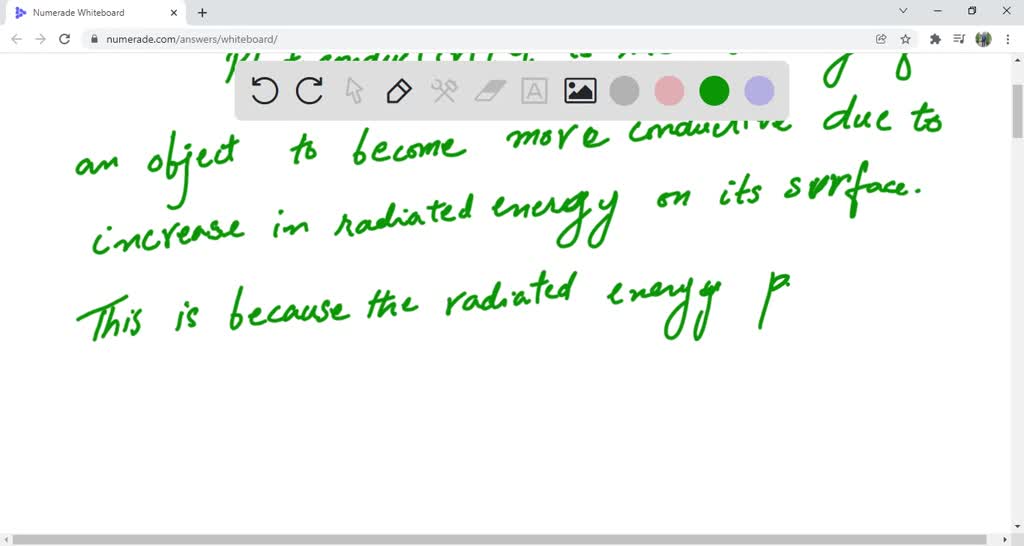 Numerade Whiteboard
numerade.com/answers/whiteboard/
an object to become more conductive due to
increase in radiated energy on its surface.
This is because the radiated energy p